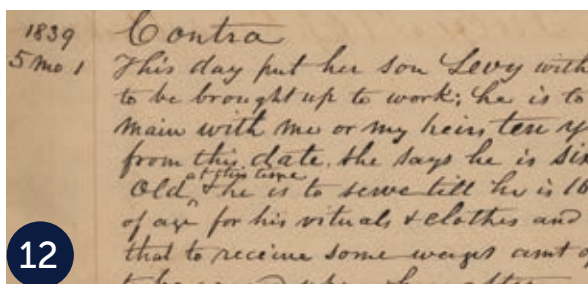 1839 Contra
5 mo 1 This day put her son Levy with
to be brought up to work; he is to
main with me or my heirs ten
from this date. She says he is six
at this time
old & he is to serve till he is 16
of age for his vituals & clothes and
that to receive some wages amt
12